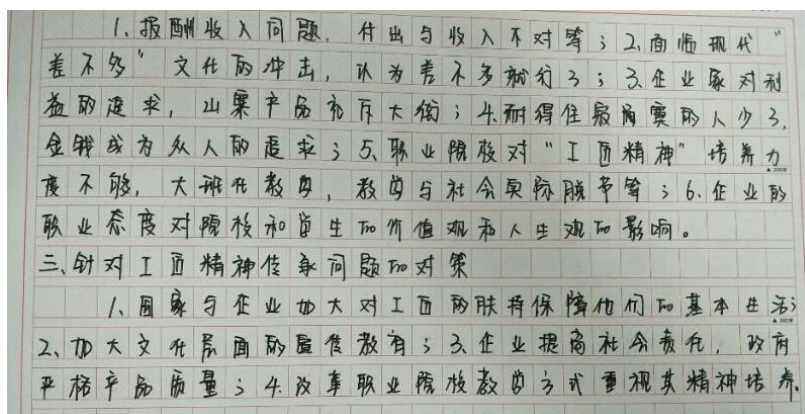 1、报酬收入问题，付出与收入不对等；2、面临现代“
差不多”文化的冲击，认为差不多就行了；3、企业家对利
益的追求，山寨产品充斥大街；4、耐得住寂寞的人少了，
金钱成为众人的追求；5、职业院校对“工匠精神”培养力
度不够，大班化教学，教学与社会实际脱节等；6、企业的
职业态度对院校和学生的价值观和人生观的影响。
三、针对工匠精神传承问题的对策
1、国家与企业加大对工匠的扶持保障他们的基本生活；
2、加大文化层面的宣传教育；3、企业提高社会责任，政府
严格产品质量；4、改革职业院校教学方式重视其精神培养。